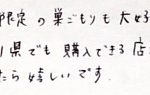 限定の巣ごもりも大好
県でも購入できる店
たら嬉しいです.